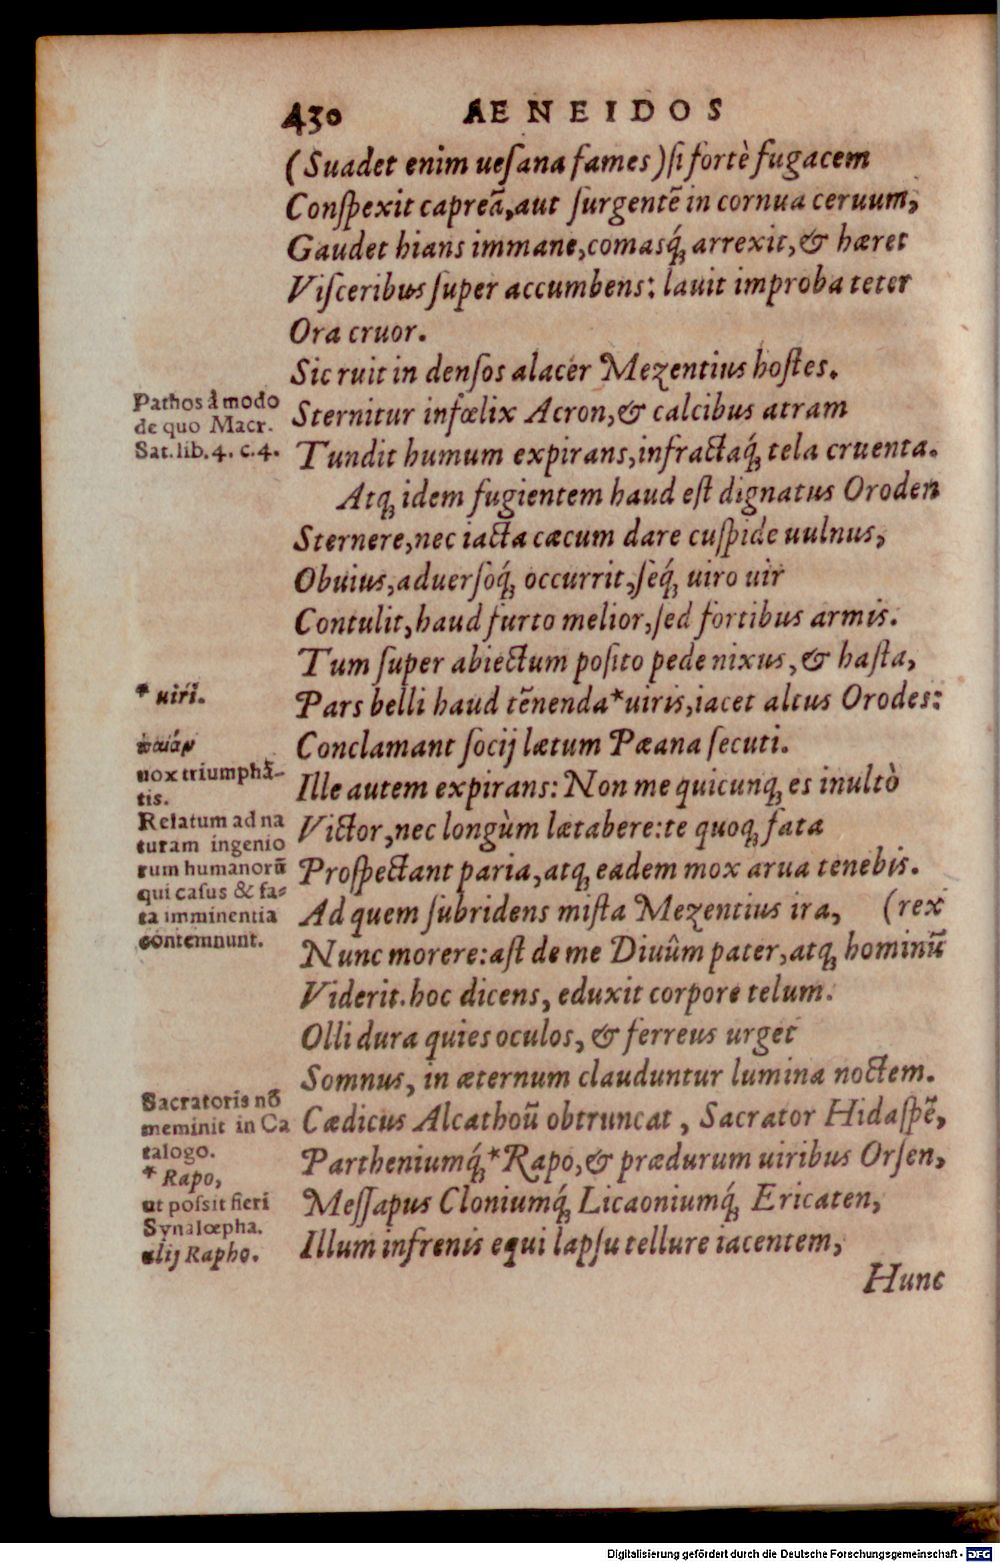 430 AENEIDOS
(Suadet enim ueſana fames) ſi fortè fugacem
Conſpexit capreã, aut ſurgentẽ in cornua ceruum,
Gaudet hians immane, comasq́ꝫ arrexit, & hæret
Viſceribus ſuper accumbens: lauit improba teter
Ora cruor.
Sic ruit in denſos alacer Mezentius hoſtes.
Sternitur infœlix Acron, & calcibus atram
Tundit humum expirans, infractaq́ꝫ tela cruenta.
Atqꝫ idem fugientem haud eſt dignatus Oroden
Sternere, nec iacta cæcum dare cuſpide uulnus,
Obuius, aduerſoq́ꝫ occurrit, ſeq́ꝫ uiro uir
Contulit, haud furto melior, ſed fortibus armis.
Tum ſuper abiectum poſito pede nixus, & haſta,
Pars belli haud tẽnenda *uiris, iacet altus Orodes:
Conclamant ſocij lætum Pæana ſecuti.
Ille autem expirans: Non me quicunqꝫ es inultò
Victor, nec longùm lætabere: te quoqꝫ fata
Proſpectant paria, atqꝫ eadem mox arua tenebis.
Ad quem ſubridens miſta Mezentius ira, (rex
Nunc morere: aſt de me Diuûm pater, atqꝫ hominũ
Viderit. hoc dicens, eduxit corpore telum.
Olli dura quies oculos, & ferreus urget
Somnus, in æternum clauduntur lumina noctem.
Cædicus Alcathoũ obtruncat, Sacrator Hidaſpẽ,
Partheniumq́ꝫ *Rapo, & prædurum uiribus Orſen,
Meſſapus Cloniumq́ꝫ Licaoniumq́ꝫ Ericaten,
Illum infrenis equi lapſu tellure iacentem,
Hunc
Pathos à modo
de quo Macr.
Sat. lib. 4. c. 4.
* uiri.
παιάν
uox triumphã-
tis.
Relatum ad na
turam ingenio
rum humanorũ
qui caſus & fa-
ta imminentia
contemnunt.
Sacratoris nõ
meminit in Ca
talogo.
* Rapo,
ut poſsit fieri
Synalœpha.
alij Rapho.
Digitalisierung gefördert durch die Deutsche Forschungsgemeinschaft - DFG